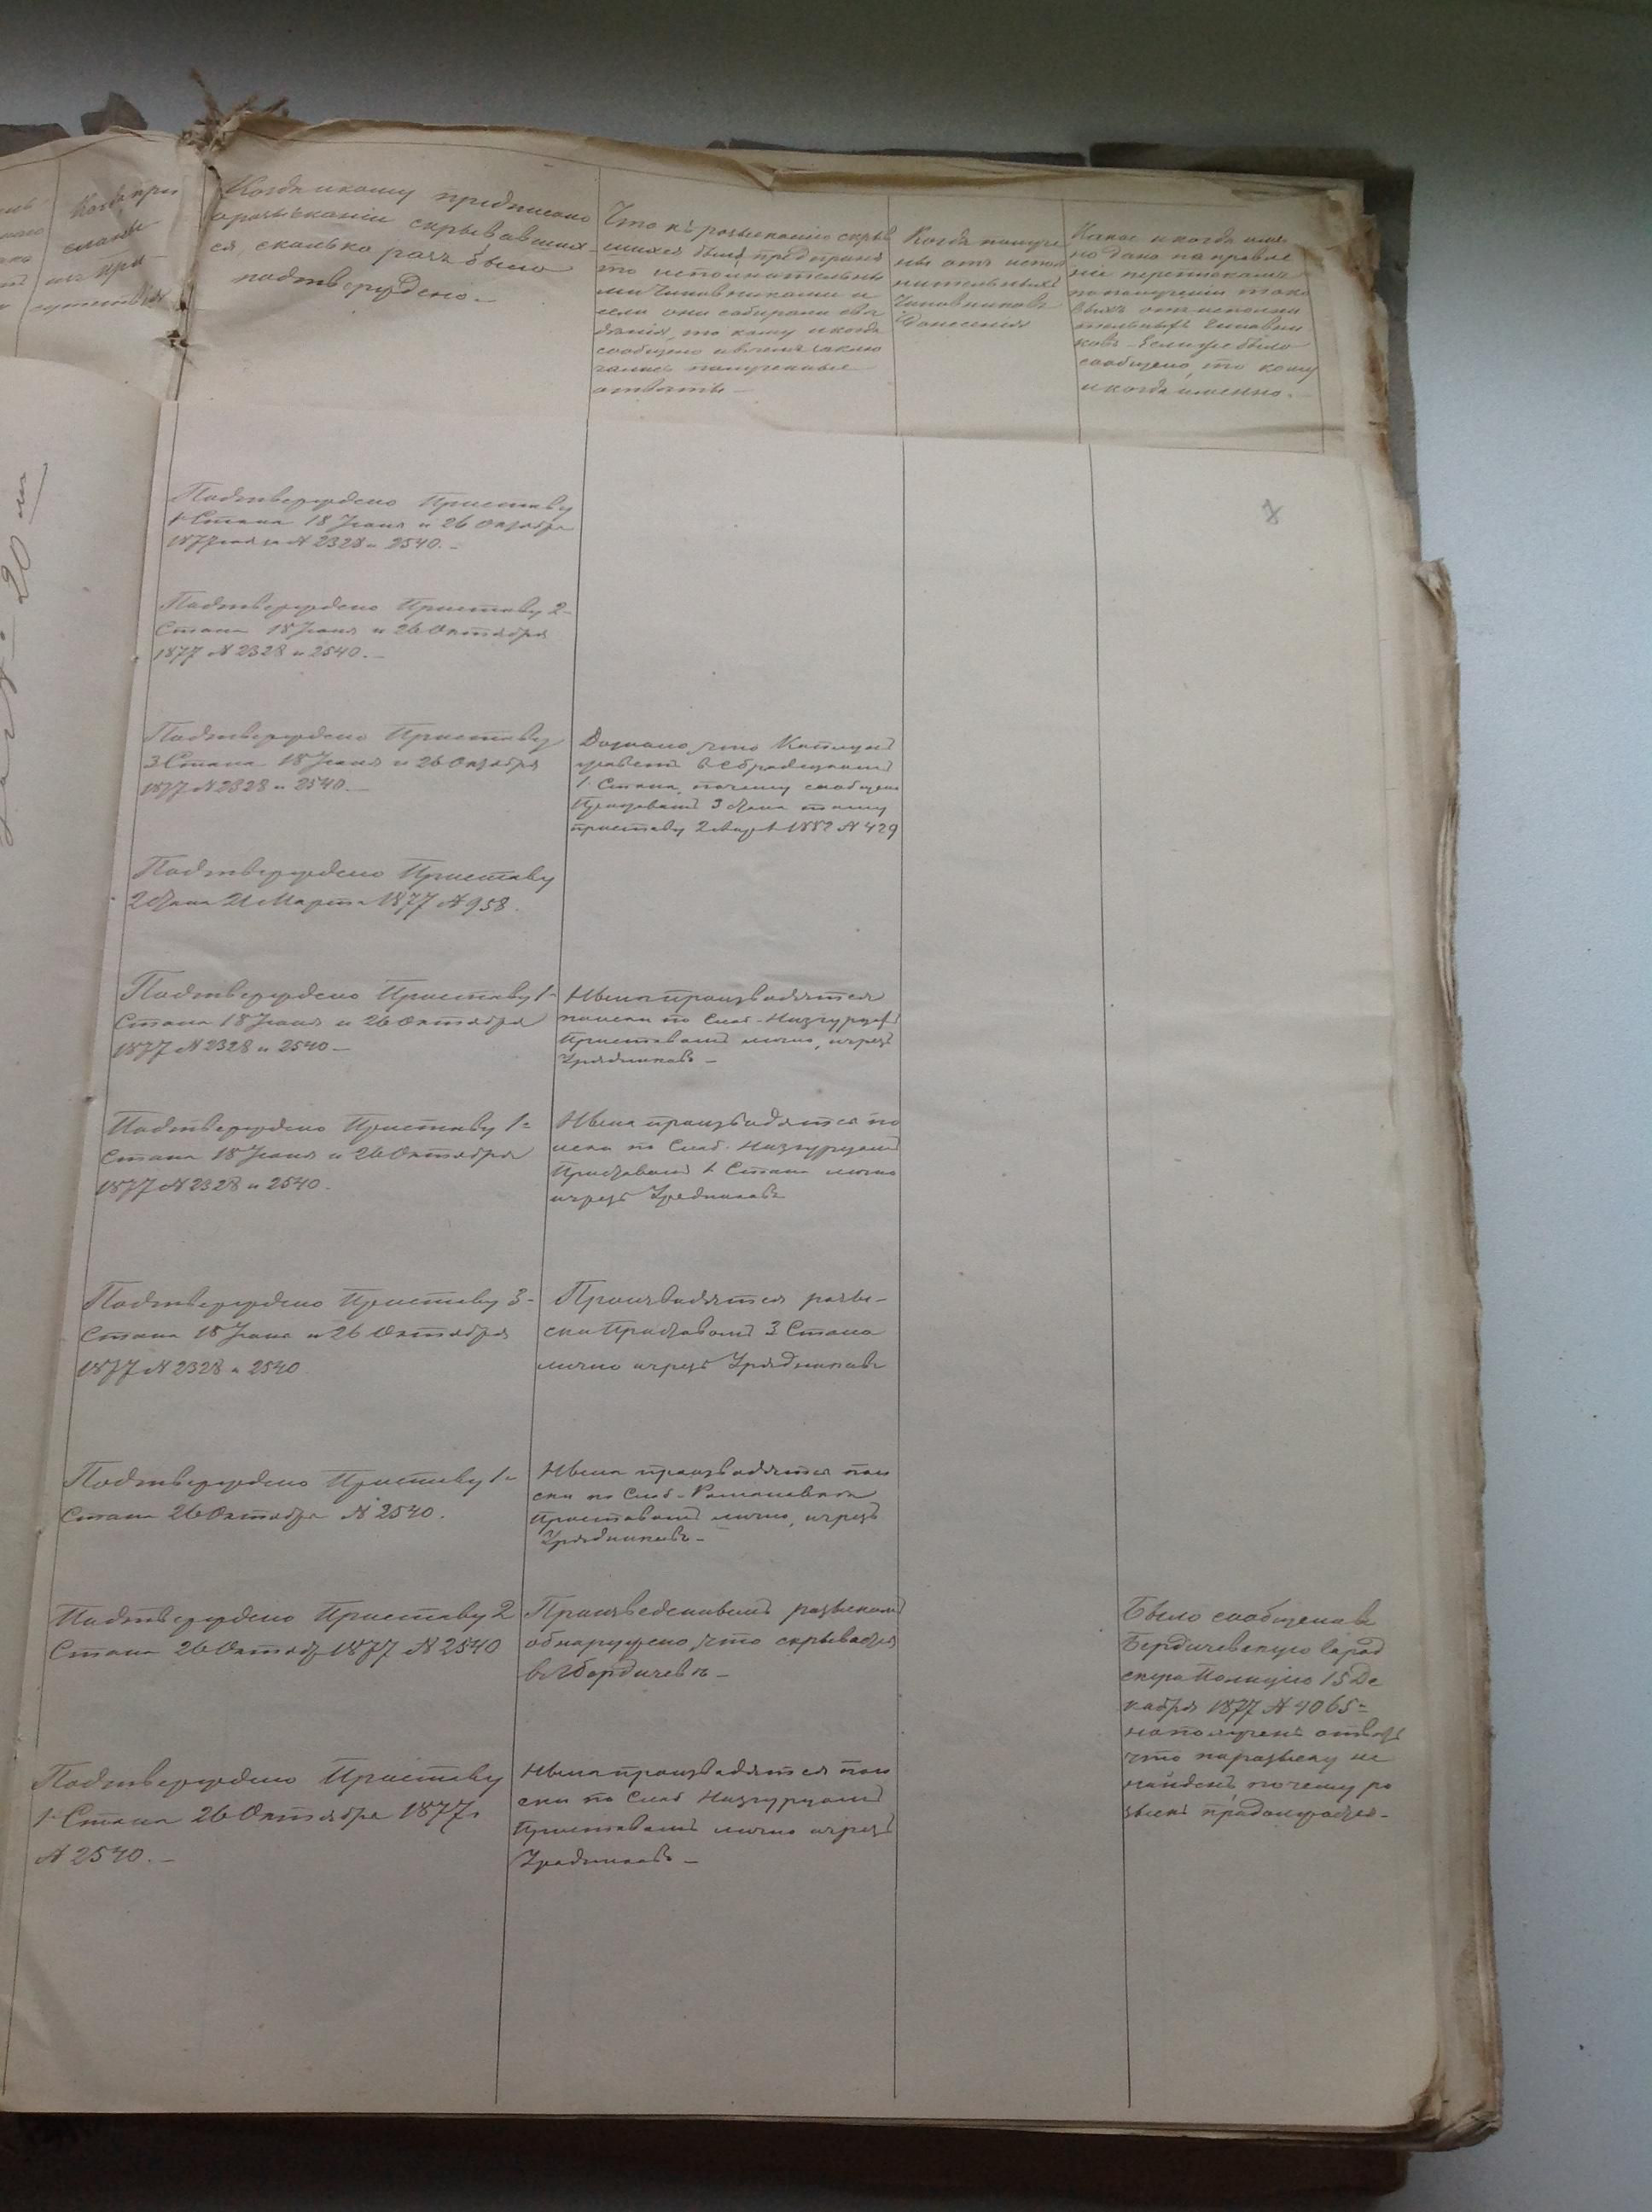 Когда при
сланы
Когда и кому предписано
о розысканіи скрывавших
ся, сколько разъ было
подтверждено.—
Что къ розысканію скрыв
шихся было предприня
то исполнительны
ми чиновниками и
если они собирали свѣ
дѣнія, то кому и когда
сообщено и в чемъ заклю
чались полученные
отвѣты —
Когда получе
ны отъ испол
нительныхъ
Чиновниковъ
Донесенія
Какое и когда име
но дано направле
ніе перепискамъ
по полученіи тако
выхъ отъ исполни
тельныхъ чиновни
ковъ — Если же было
сообщено, то кому
и когда именно.—
Подтверждено Приставу
1 Стана 18 Іюня и 26 Октября
1877 года за № 2328 и 2540.—
Подтверждено Приставу 2-
Стана 18 Іюня и 26 Октября
1877 № 2328 и 2540.—
Подтверждено Приставу
3 Стана 18 Іюня и 26 Октября
1877 № 2328 и 2540.—
Дознано, что
1 Стана, почему сообщено
Приставомъ 3 Стана тому
приставу 2 № 429
Подтверждено Приставу
2 Стана 21 Марта 1877 № 958.
Подтверждено Приставу 1-
Стана 18 Іюня и 26 Октября
1877 № 2328 и 2540 —
Ныне производятся
поиски по Слоб.
Приставомъ лично, и чрезъ
Урядниковъ —
Подтверждено Приставу 1-
Стана 18 Іюня и 26 Октября
1877 № 2328 и 2540.
Ныне производятся по
иски по Слоб.
Приставомъ 1 Стана лично
и чрезъ Урядниковъ
Подтверждено Приставу 3-
Стана 18 Іюня и 26 Октября
1877 № 2328 и 2540
Производятся розы-
ски Приставомъ 3 Стана
лично и чрезъ Урядниковъ
Подтверждено Приставу 1-
Стана 26 Октября № 2540.
Ныне производятся пои
ски по Слоб-
Приставомъ лично, и чрезъ
Урядниковъ —
Подтверждено Приставу 2
Стана 26 Октяб 1877 № 2540
Произведеннымъ розыскомъ
обнаружено, что скрывается
в г Бердичевѣ —
Было сообщено в
Бердичевскую Город
скую Полицію 15 Де
кабря 1877 № 4065-
но полученъ отвѣтъ
что по розыску не
найденъ почему ро
зыскъ продолжается —
Подтверждено Приставу
1 Стана 26 Октября 1877 г
№ 2540.—
Ныне производятся пои
ски по Слоб
Приставомъ лично и чрезъ
Урядниковъ —